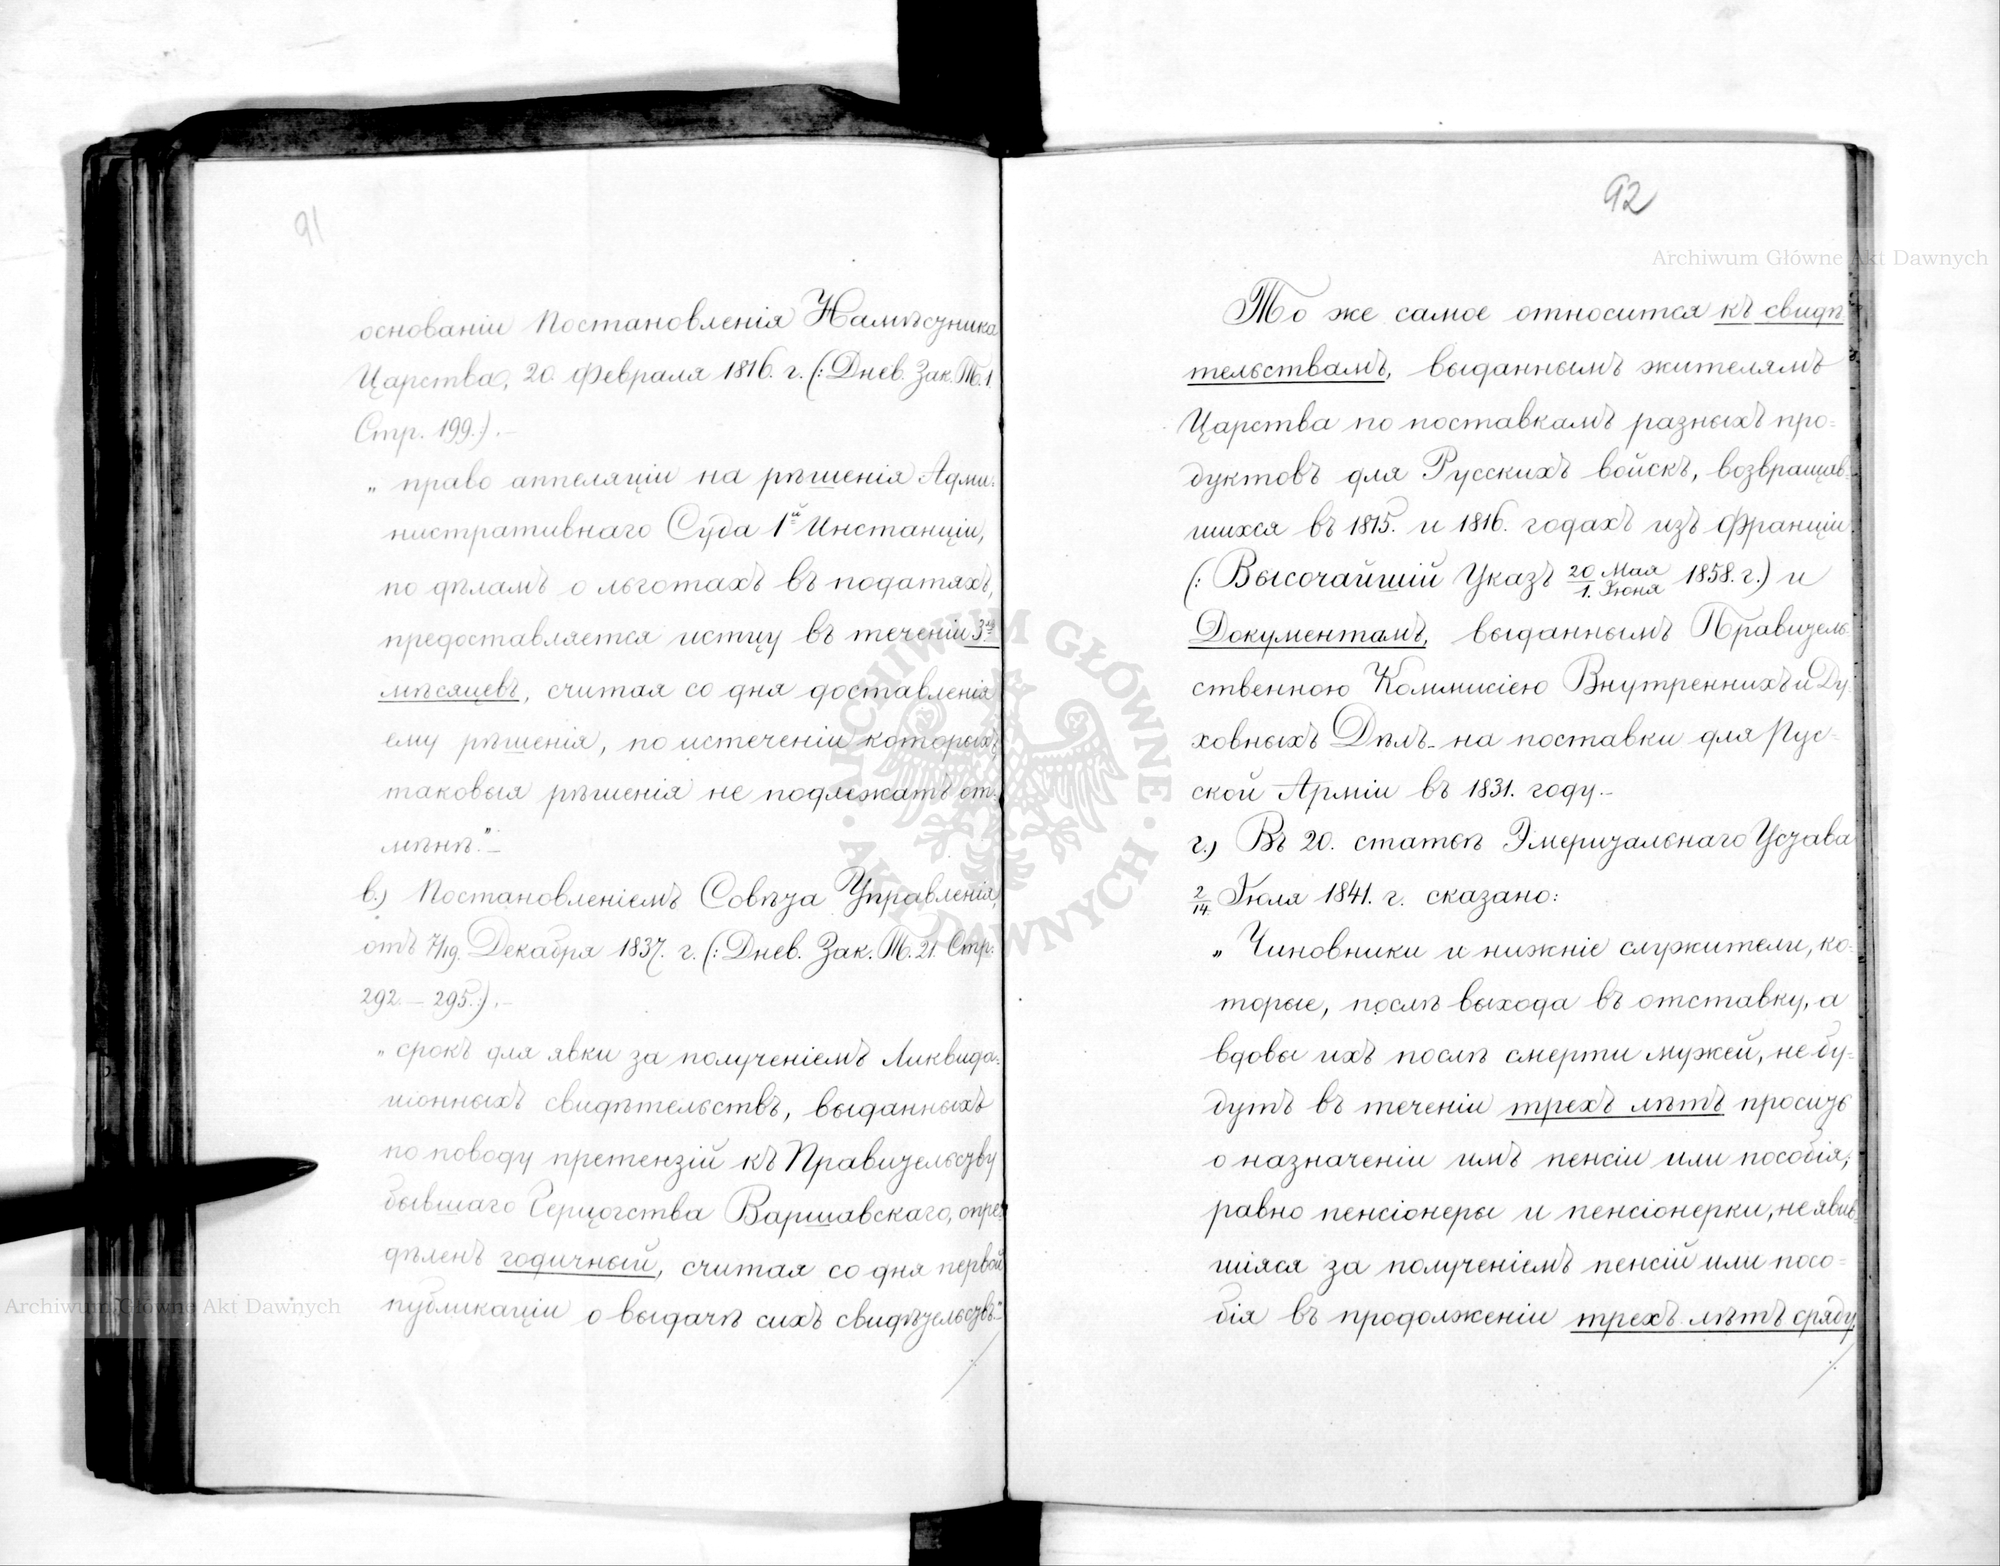 91
основаніи Постановленія Намѣстника
Царства, 20. Февраля 1816. г. (: Днев. Зак. Т. 1.
Стр. 199.:).–
„ право аппеляціи на рѣшенія Адми-
нистративнаго Суда 1й Инстанціи,
по дѣламъ о льготахъ въ податяхъ,
предоставляется истцу въ теченіи 3хъ
мѣсяцевъ, считая со дня доставленія
ему рѣшенія, по истеченіи которыхъ
таковыя рѣшенія не подлежатъ от-
мѣнѣ.”–
в.) Постановленіемъ Совѣта Управленія,
отъ 7/19. Декабря 1837. г. (: Днев. Зак. Т. 21. Стр:
292.–295.:).–
„ срокъ для явки за полученіемъ Ликвида-
ціонныхъ свидѣтельствъ, выданныхъ
по поводу претензій къ Правительству
бывшаго Герцогства Варшавскаго, опре-
дѣленъ годичный, считая со дня первой
публикаціи о выдачѣ сихъ свидѣтельствъ.”–
92
То же самое относится къ свидѣ
тельствамъ, выданнымъ жителямъ
Царства по поставкамъ разныхъ про-
дуктовъ для Русскихъ войскъ, возвращав-
шихся въ 1815. и 1816. годахъ изъ Франціи.
(: Высочайшій Указъ 20 Мая/1. Іюня 1858. г.) и
Документамъ, выданнымъ Правитель
ственною Коммисіею Внутреннихъ и Ду-
ховныхъ Дѣлъ – на поставки для Рус-
ской Арміи въ 1831. году.–
г.) Въ 20. статьѣ Эмеритальнаго Устава
2/14. Іюля 1841. г. сказано:
„ Чиновники и нижніе служители, ко-
торые, послѣ выхода въ отставку, а
вдовы ихъ послѣ смерти мужей, не бу-
дутъ въ теченіи трехъ лѣтъ просить
о назначеніи имъ пенсіи или пособія;
равно пенсіонеры и пенсіонерки, не явив-
шіяся за полученіемъ пенсій или посо-
бія въ продолженіи трехъ лѣтъ сряду
Archiwum Główne Akt Dawnych
Archiwum Główne Akt Dawnych
ARCHIWUM GŁÓWNE AKT DAWNYCH